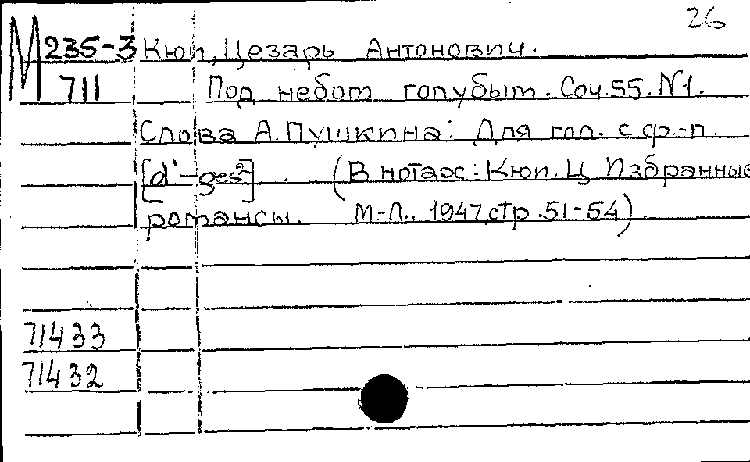 26
М 235-3 Кюи, Цезарь Антонович.
711 Под небом голубым. Соч. 55. N1.
Слова А. Пушкина: Для гол. с ф.-п.
[d'-ges²]. (В нотах: Кюи. Ц. Избранные
романсы. М-Л.. 1947, стр. 51-54)
71433
71432